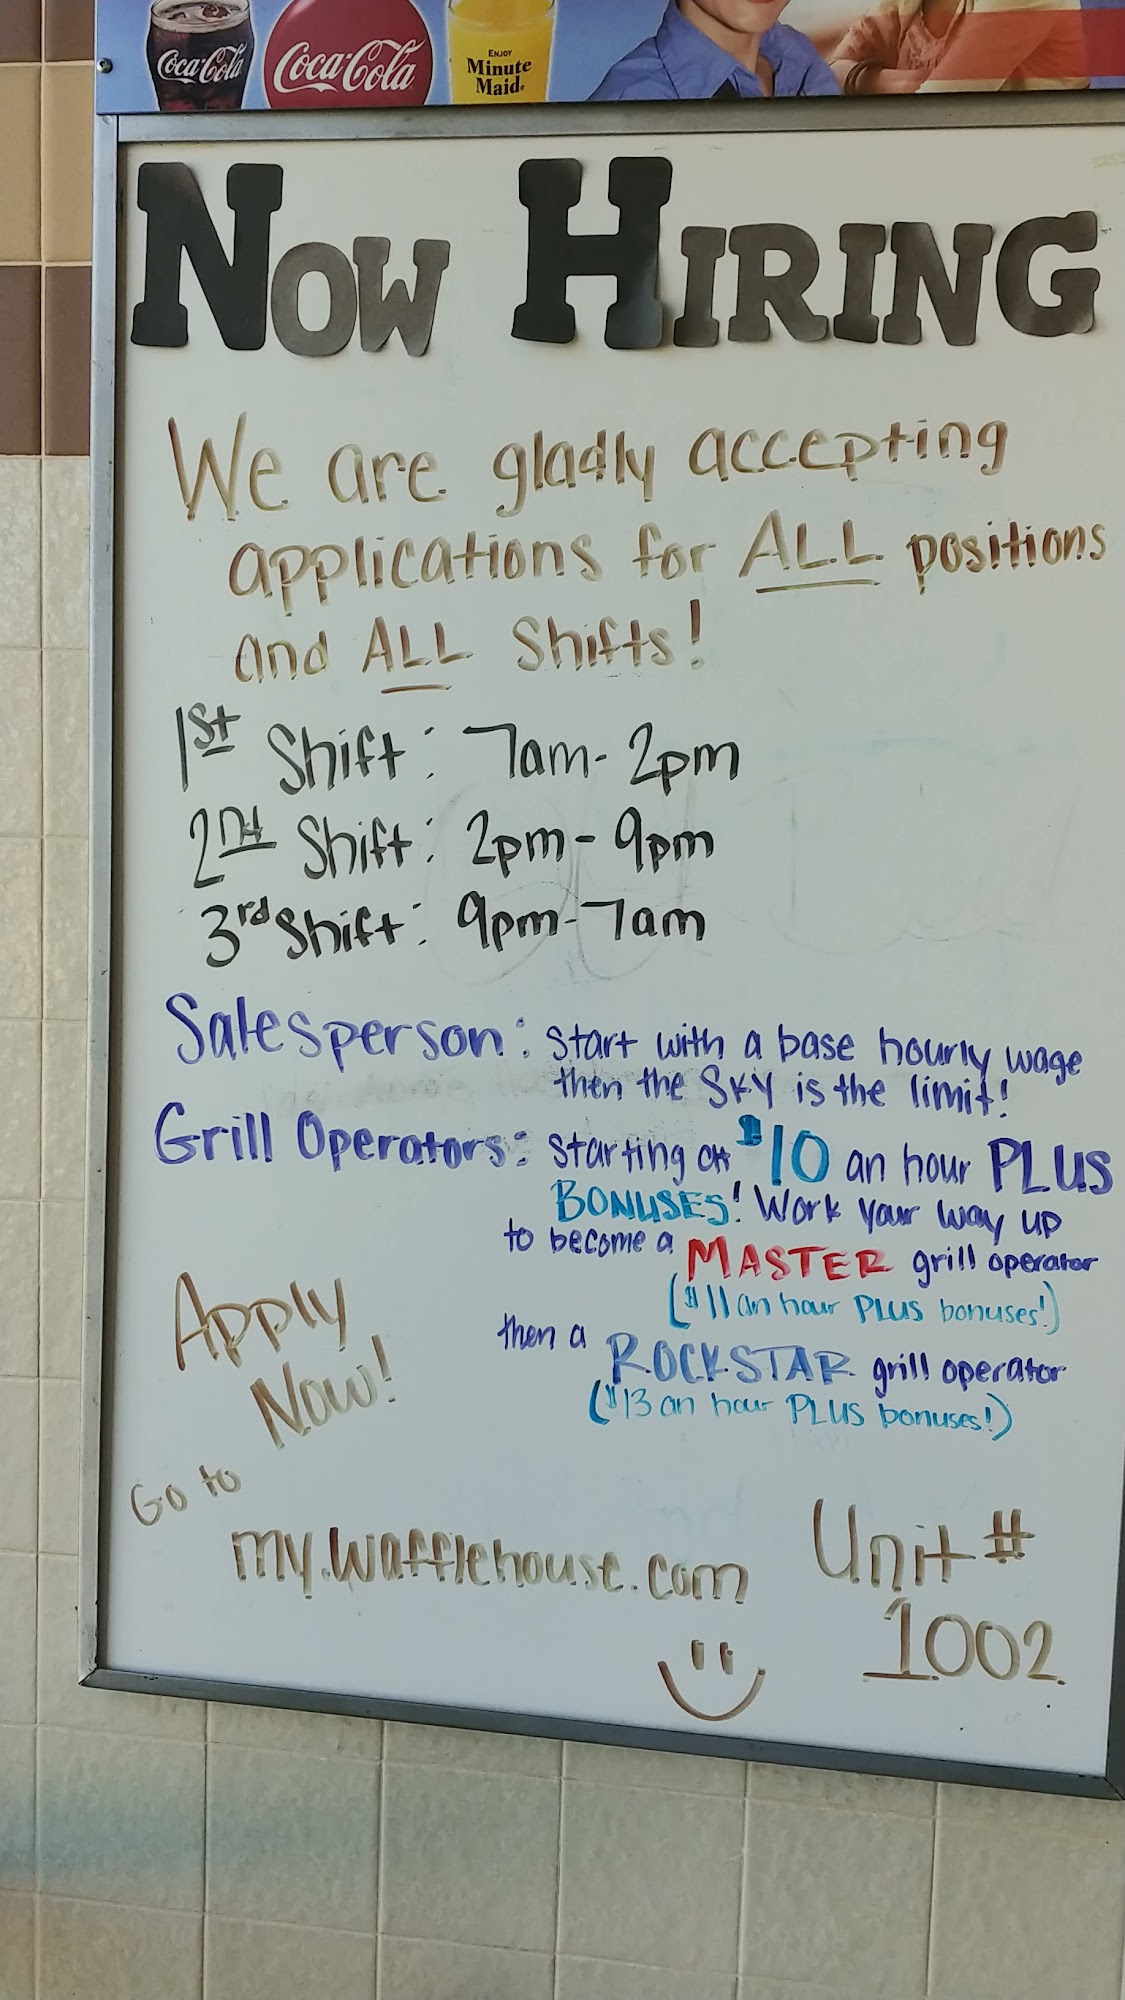 Coca-Cola
Coca-Cola
ENJOY
Minute
Maid
NOW HIRING
We are gladly accepting
applications for ALL positions
and ALL Shifts!
1st Shift: 7am-2pm
2nd Shift: 2pm-9pm
3rd Shift: 9pm-7am
Salesperson: Start with a base hourly wage
then the SKY is the limit!
Grill Operators: starting at $10 an hour PLUS
BONUSES! Work your way up
to become a MASTER grill operator
($11 an hour PLUS bonuses!)
then a ROCKSTAR grill operator
($13 an hour PLUS bonuses!)
Apply
Now!
Go to
my.wafflehouse.com
Unit #
1002